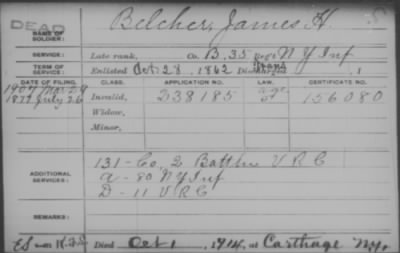 DEAD
NAME OF SOLDIER: Belcher, James H
SERVICE: Late rank, Co. B, 35 Reg't N Y Inf
TERM OF SERVICE: Enlisted Oct 28, 1862 Discharged Trans, 1
DATE OF FILING. CLASS. APPLICATION NO. LAW. CERTIFICATE NO.
1907 Mar 29 age
1877 July 26 Invalid, 238185 156080
Widow,
Minor,
ADDITIONAL SERVICES: 131 - Co. 2 Battln V R C
A - 80 N Y Inf
D - 11 V R C
REMARKS:
Died Oct 1, 1914, at Carthage N.Y.